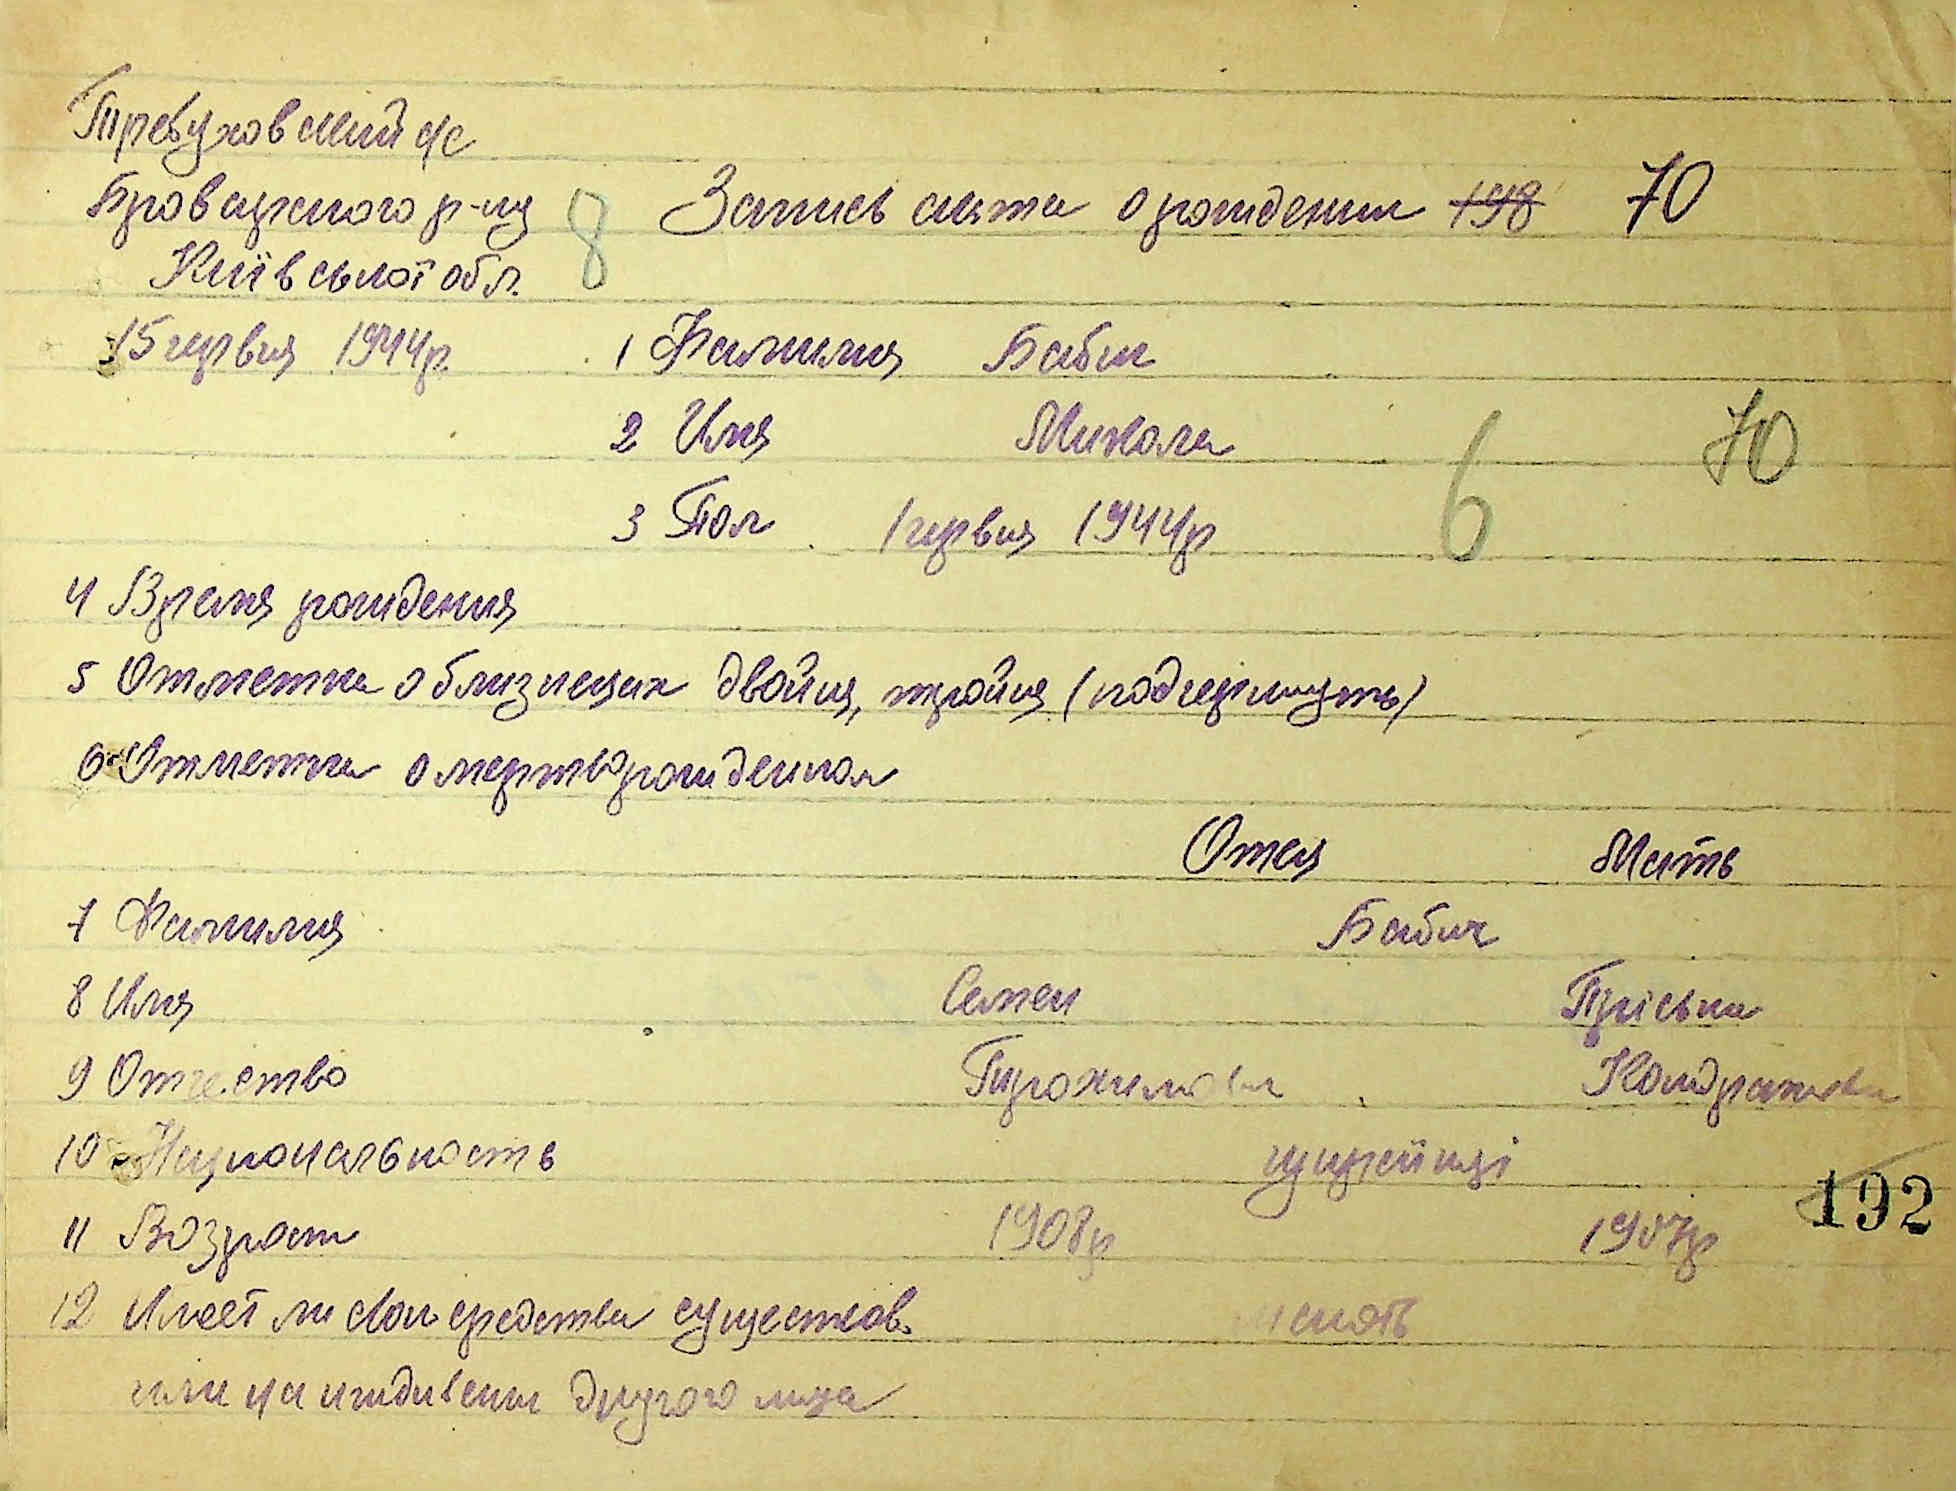 Требуховський с/с
Броварского р-на 8 Запись акта о рождении 198 70
Київської обл.
15 червня 1944р. 1 Фамилия Бабич
2 Имя Микола 6 70
3 Пол 1 червня 1944р
4 Время рождения
5 Отметка о близнецах двойня, тройня (подчеркнуть)
6 Отметка о мертворожденном
Отец Мать
7 Фамилия Бабич
8 Имя Семен Пріська
9 Отчество Кондратовна
10 Национальность українці
192
11 Возраст 1908р 1907р
12 Имеет ли свои средства существов.
или на иждивении другого лица